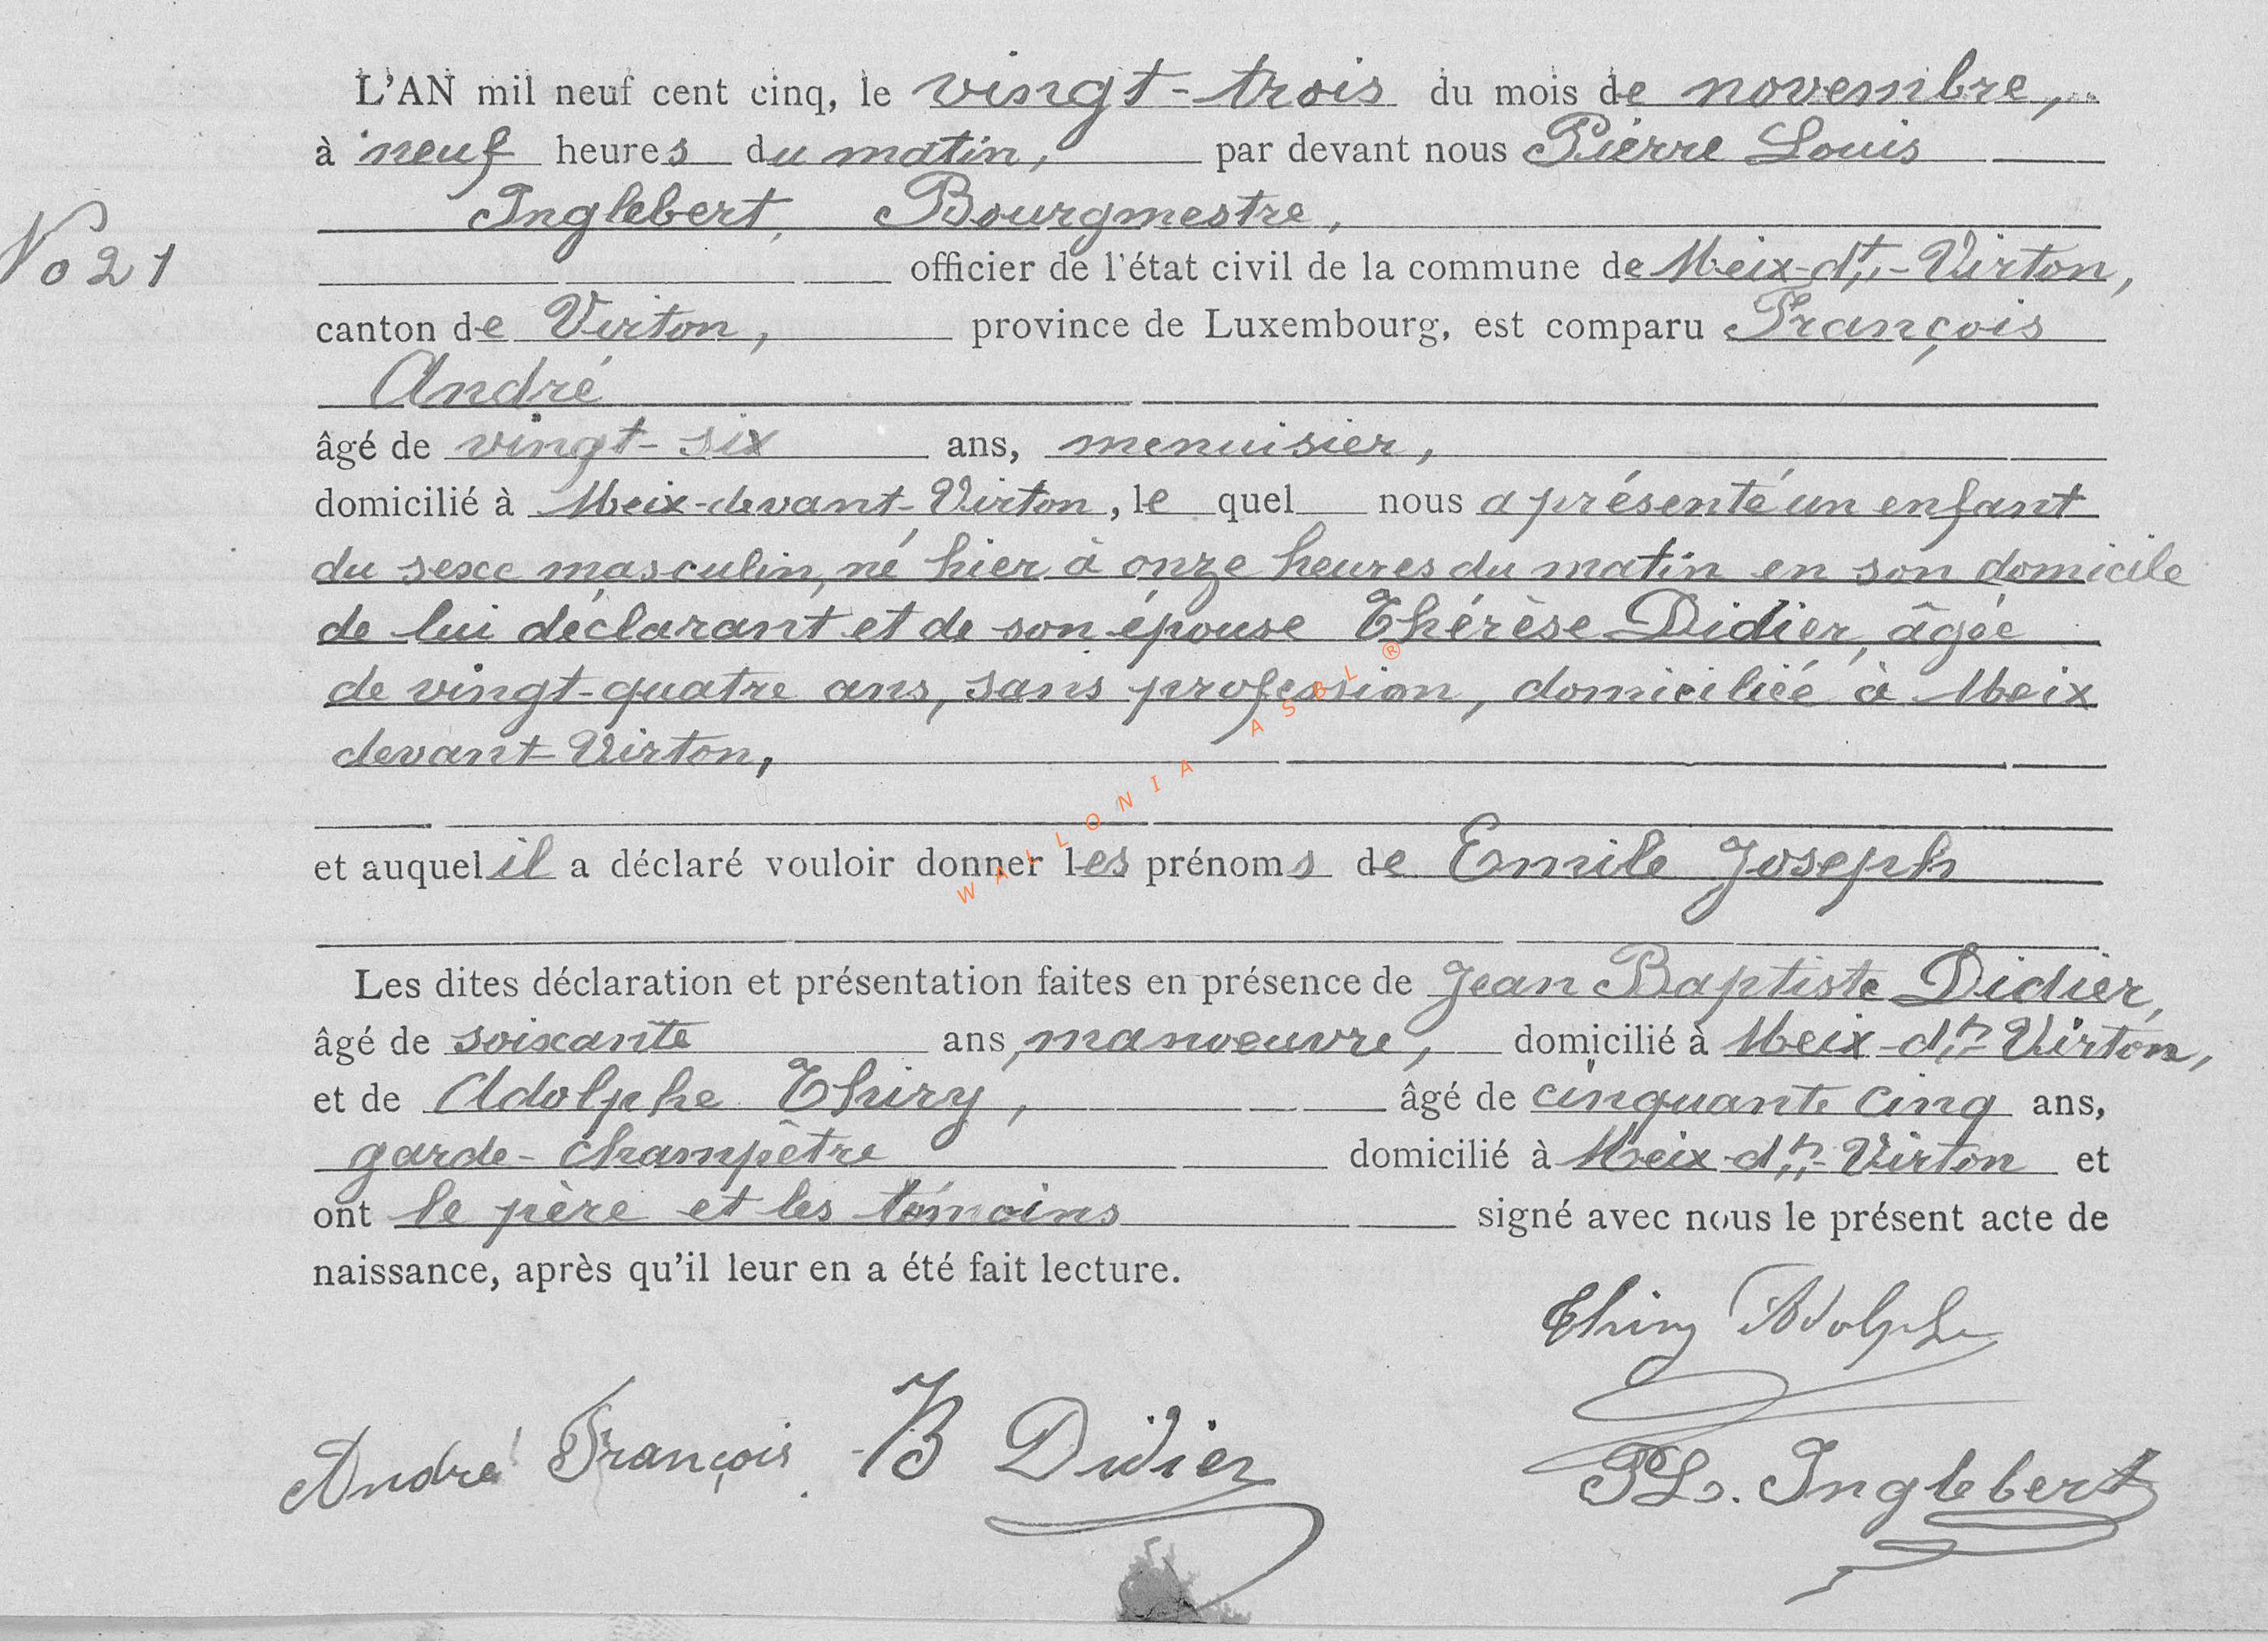 L'AN mil neuf cent cinq, le vingt-trois du mois de novembre,
à neuf heures du matin, par devant nous Pierre Louis
Inglebert, Bourgmestre,
No 21
officier de l'état civil de la commune de Meix-dt-Virton,
canton de Virton, province de Luxembourg, est comparu François
André
âgé de vingt-six ans, menuisier,
domicilié à Meix-devant-Virton, le quel nous a présenté un enfant
du sexe masculin, né hier à onze heures du matin en son domicile
de lui déclarant et de son épouse Thérèse Didier, âgée
de vingt-quatre ans, sans profession, domiciliée à Meix
devant-Virton,
WALLONIA ASBL ®
et auquel il a déclaré vouloir donner les prénoms de Emile Joseph
Les dites déclaration et présentation faites en présence de Jean Baptiste Didier,
âgé de soixante ans, manoeuvre, domicilié à Meix-dt-Virton,
et de Adolphe Thiry, âgé de cinquante cinq ans,
garde-champêtre domicilié à Meix-dt-Virton et
ont le père et les témoins signé avec nous le présent acte de
naissance, après qu'il leur en a été fait lecture.
Thiry Adolphe
André François JB Didier
PL. Inglebert